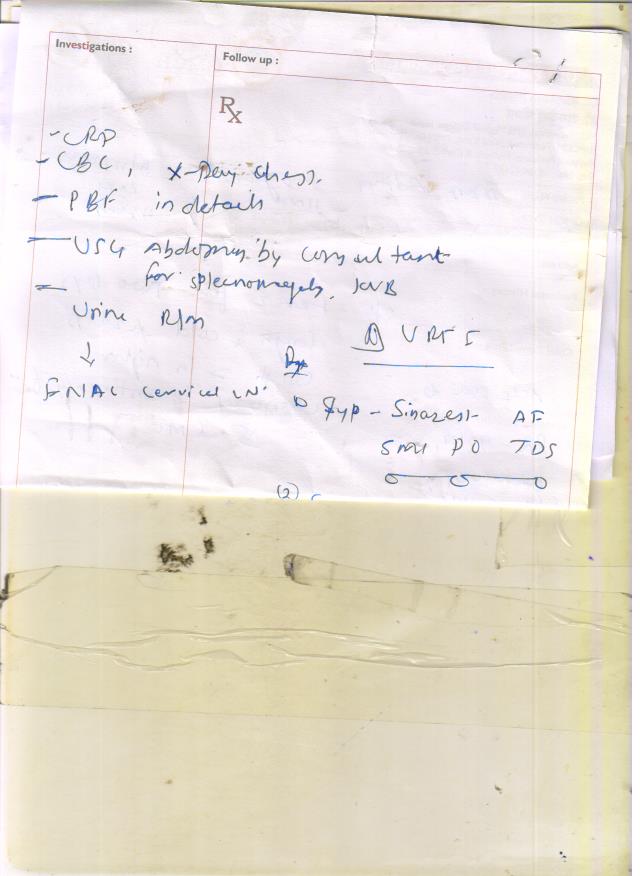 Investigations :
Follow up :
Rx
- CRP
- CBC, X-Ray Chest.
- PBF in details
- USG Abdomen by consultant
for spleenomegaly, KUB
- Urine R/M
↓
FNAC Cervical LN.
Δ URTI
Rx
① Syp - Sinarest AF
5ml PO TDS
(2)